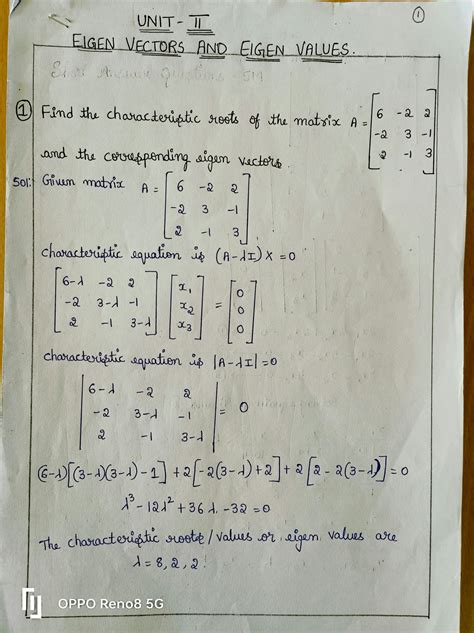 ①
UNIT - II
EIGEN VECTORS AND EIGEN VALUES.
① Find the characteristic roots of the matrix A = [6 -2 2
-2 3 -1
2 -1 3]
and the corresponding eigen vectors.
Sol: Given matrix A = [6 -2 2
-2 3 -1
2 -1 3]
characteristic equation is (A-λI)X = 0
[6-λ -2 2
-2 3-λ -1
2 -1 3-λ] [x₁
x₂
x₃] = [0
0
0]
characteristic equation is |A-λI| = 0
|6-λ -2 2
-2 3-λ -1
2 -1 3-λ| = 0
(6-λ)[(3-λ)(3-λ)-1] + 2[-2(3-λ)+2] + 2[2-2(3-λ)] = 0
λ³-12λ²+36λ-32=0
The characteristic roots/values or eigen values are
λ = 8, 2, 2.
OPPO Reno8 5G